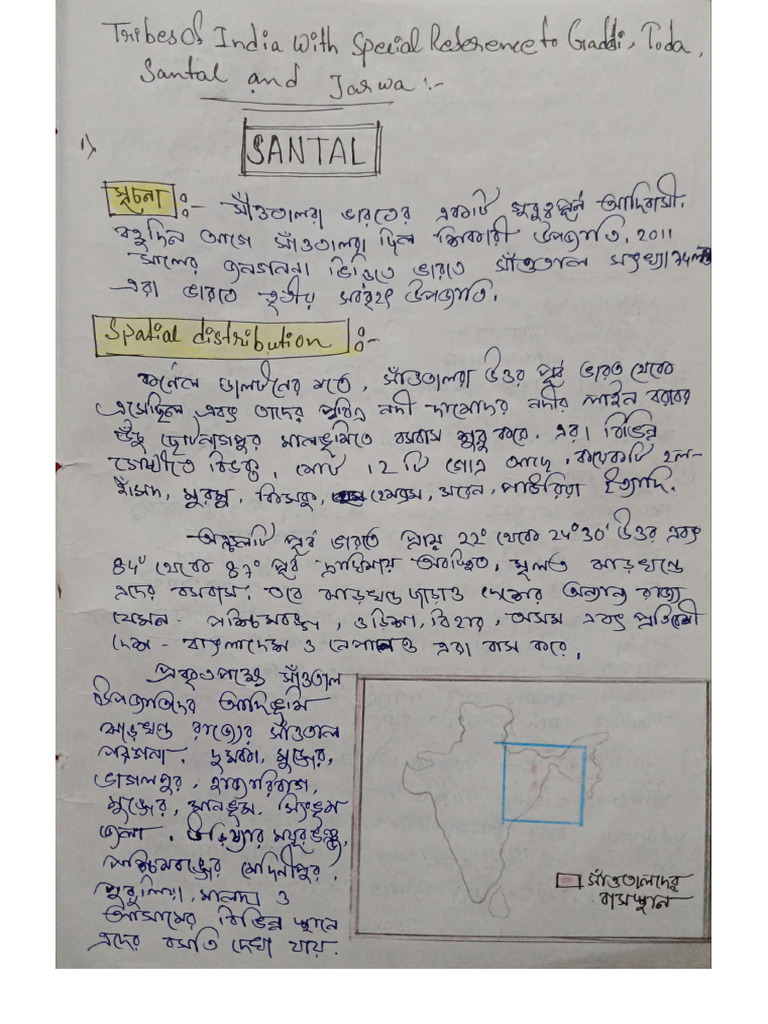 Tribes of India with Special Reference to Gaddi, Toda,
Santal and Jarwa :-
1)
SANTAL
সূচনা :- সাঁওতালরা ভারতের একটি গুরুত্বপূর্ণ আদিবাসী.
বহুদিন আগে সাঁওতালরা ছিল শিকারী উপজাতি. 2011
সালের জনগননা ভিত্তিতে ভারতে সাঁওতাল সংখ্যা
এরা ভারতে তৃতীয় সর্ববৃহৎ উপজাতি.
Spatial distribution :-
কর্নেল ডালটনের মতে, সাঁওতালরা উত্তর পূর্ব ভারত থেকে
এসেছিল এবং তাদের পবিত্র নদী দামোদর নদীর লাইন বরাবর
ছোটনাগপুর মালভূমিতে বসবাস শুরু করে. এরা বিভিন্ন
গোষ্ঠীতে বিভক্ত, মোট 12 টি গোত্র আছে, কয়েকটি হল-
হাঁসদা, মুরমু, কিসকু, হেমব্রম, সরেন, পাউরিয়া ইত্যাদি.
অঞ্চলটি পূর্ব ভারতে প্রায় 22° থেকে 24°30' উত্তর এবং
84° থেকে 87° পূর্ব দ্রাঘিমায় অবস্থিত, মূলত ঝাড়খণ্ডে
এদের বসবাস. তবে ঝাড়খণ্ড ছাড়াও দেশের অন্যান্য রাজ্য
যেমন - পশ্চিমবঙ্গ, ওড়িশা, বিহার, অসম এবং প্রতিবেশী
দেশ - বাংলাদেশ ও নেপালেও এরা বাস করে,
প্রকৃতপক্ষে সাঁওতাল
উপজাতিদের আদিভূমি
ঝাড়খণ্ড রাজ্যের সাঁওতাল
পরগনা. দুমকা, মুঙ্গের,
ভাগলপুর, হাজারিবাগ,
মুঙ্গের, মানভূম. সিংভূম
জেলা. উড়িষ্যার ময়ূরভঞ্জ,
পশ্চিমবঙ্গের মেদিনীপুর,
পুরুলিয়া, মালদা ও
আসামের বিভিন্ন স্থানে
এদের বসতি দেখা যায়.
সাঁওতালদের
বাসস্থান